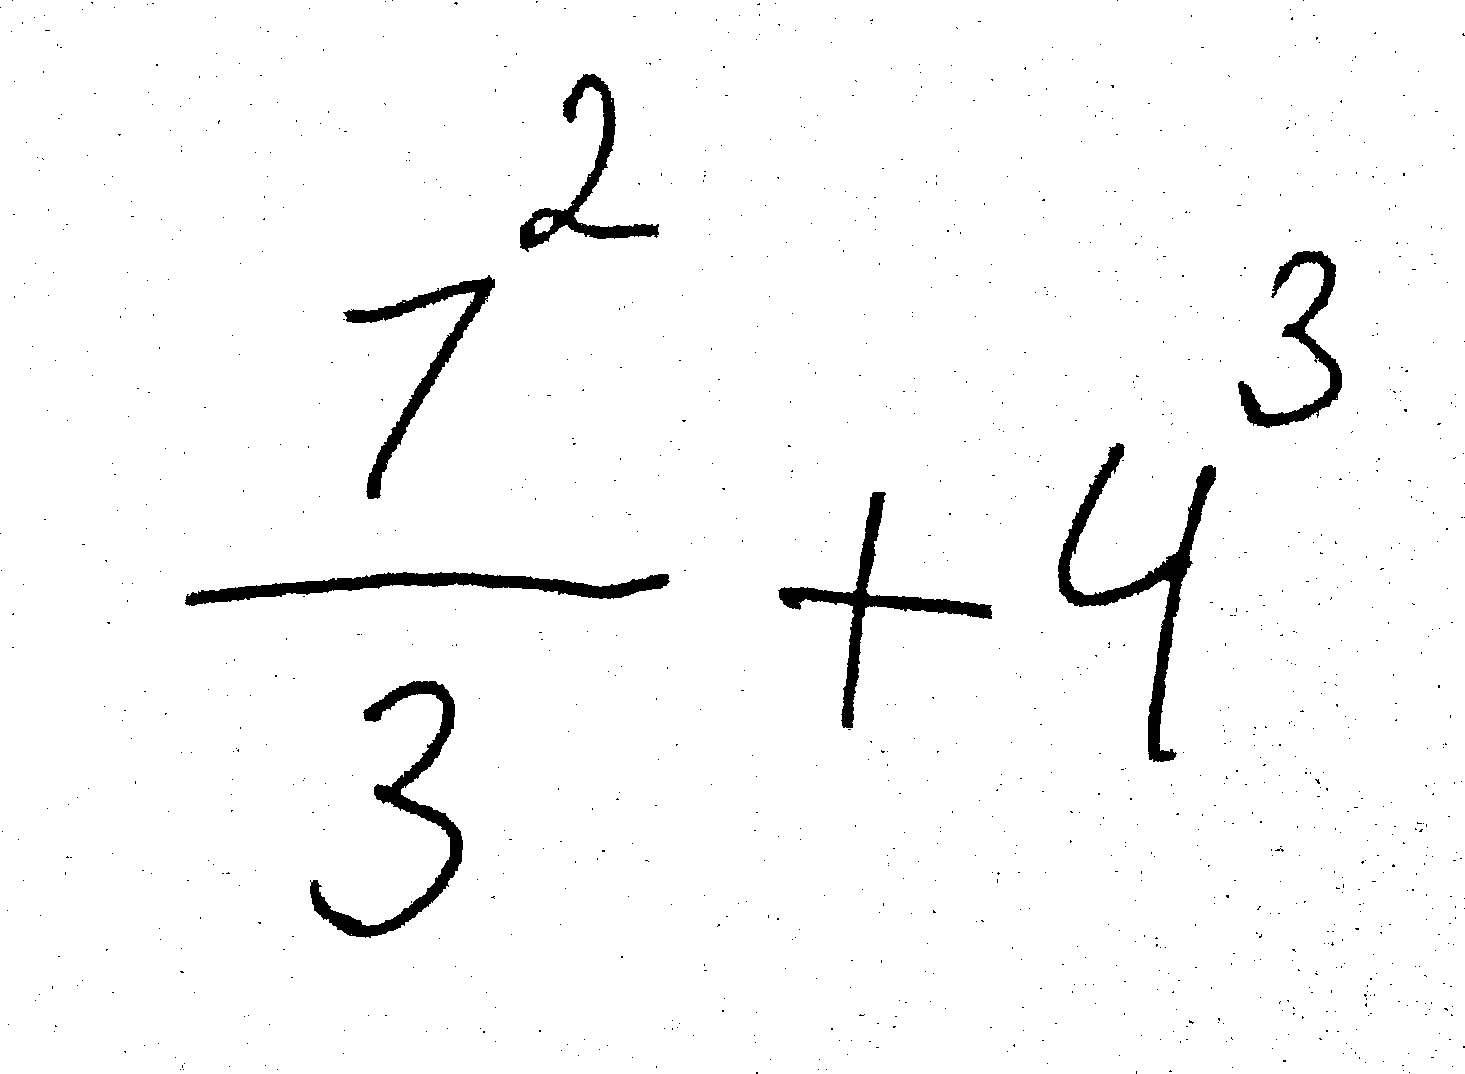 7²
3
+ 4³